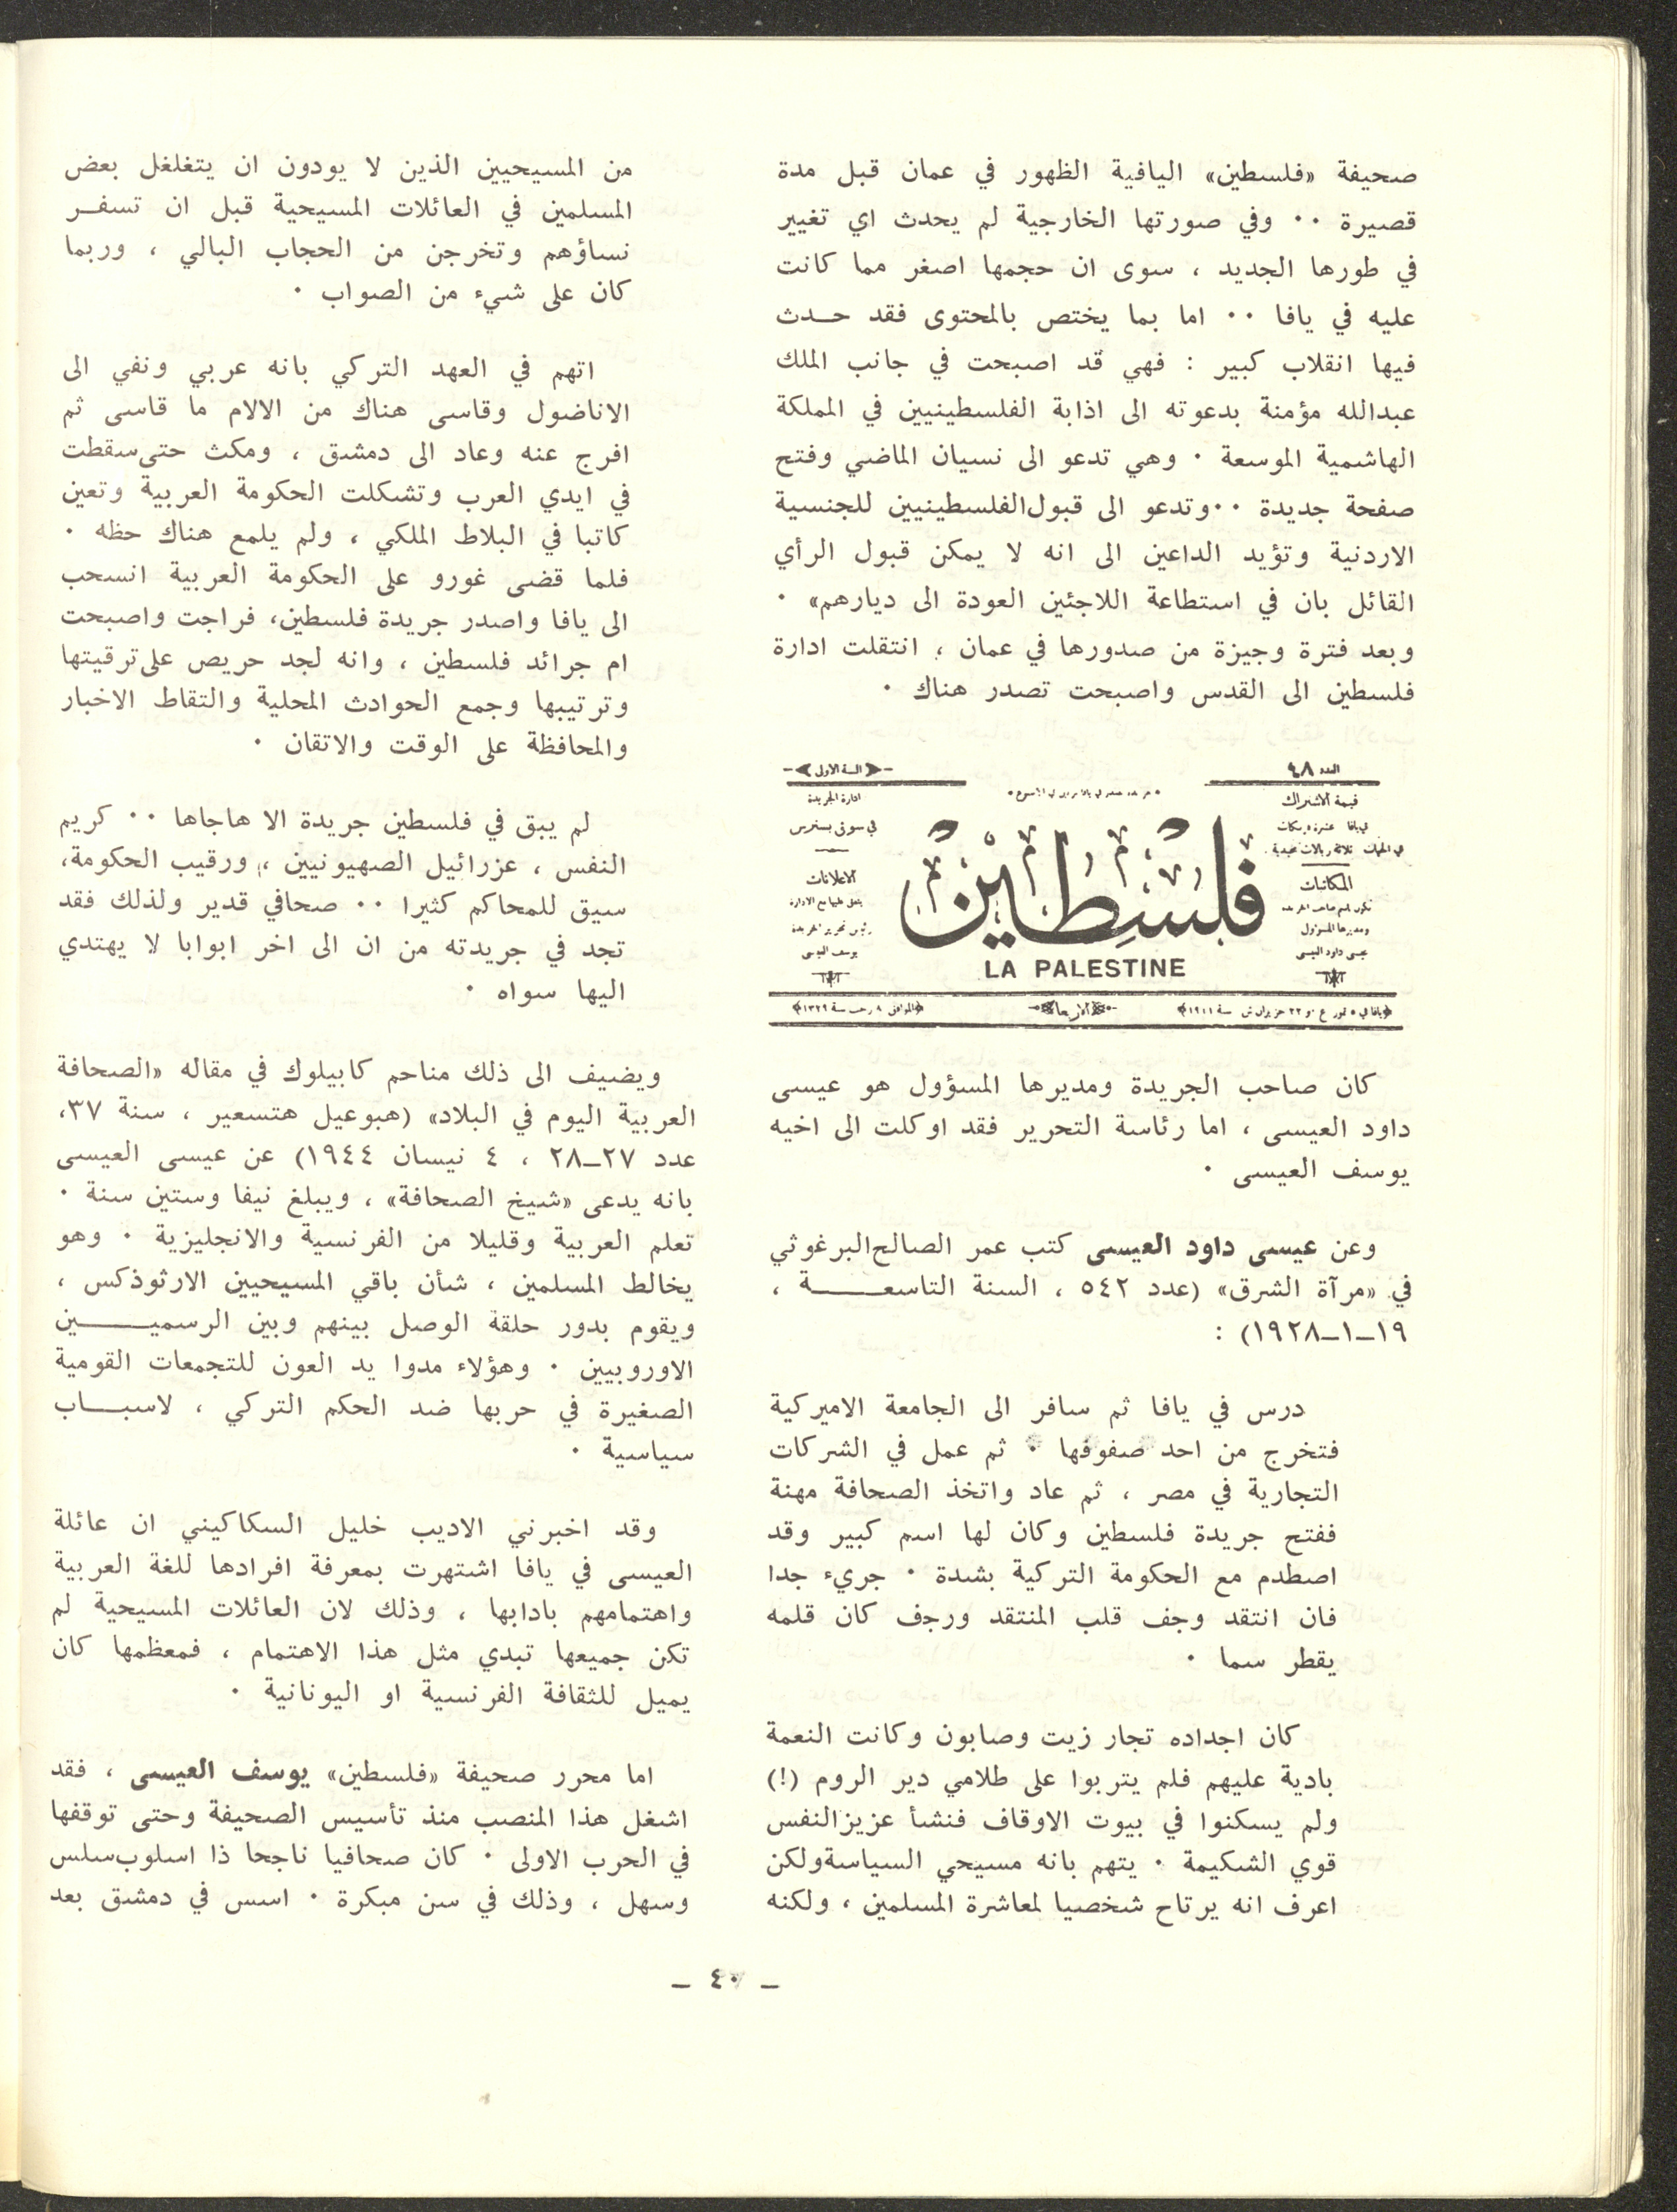 صحيفة «فلسطين» اليافية الظهور في عمان قبل مدة
قصيرة ٠٠ وفي صورتها الخارجية لم يحدث اي تغيير
في طورها الجديد ، سوى ان حجمها اصغر مما كانت
عليه في يافا ٠٠ اما بما يختص بالمحتوى فقد حـدث
فيها انقلاب كبير : فهي قد اصبحت في جانب الملك
عبدالله مؤمنة بدعوته الى اذابة الفلسطينيين في المملكة
الهاشمية الموسعة ٠ وهي تدعو الى نسيان الماضي وفتح
صفحة جديدة ٠٠وتدعو الى قبول الفلسطينيين للجنسية
الاردنية وتؤيد الداعين الى انه لا يمكن قبول الرأي
القائل بان في استطاعة اللاجئين العودة الى ديارهم» ٠
وبعد فترة وجيزة من صدورها في عمان ، انتقلت ادارة
فلسطين الى القدس واصبحت تصدر هناك ٠
العدد ٤٨
السنة الاولى
قيمة الاشتراك
ادارة الجريدة
في يافا عشرة بشكات
في سوق بسترس
في الجهات ثلاثة ريالات مجيدية
فلسطين
المكاتبات
الاعلانات
ومديرها المسؤول
رئيس تحرير الجريدة
عيسى داود العيسى
يوسف العيسى
LA PALESTINE
يافا في ٥ تموز غ و ٢٢ حزيران ش سنة ١٩١١
الاربعاء
الموافق ٨ رجب سنة ١٣٢٩
كان صاحب الجريدة ومديرها المسؤول هو عيسى
داود العيسى ، اما رئاسة التحرير فقد اوكلت الى اخيه
يوسف العيسى ٠
وعن عيسى داود العيسى كتب عمر الصالح البرغوثي
في «مرآة الشرق» (عدد ٥٤٢ ، السنة التاسعــــة ،
١٩–١–١٩٢٨) :
درس في يافا ثم سافر الى الجامعة الاميركية
فتخرج من احد صفوفها ٠ ثم عمل في الشركات
التجارية في مصر ، ثم عاد واتخذ الصحافة مهنة
ففتح جريدة فلسطين وكان لها اسم كبير وقد
اصطدم مع الحكومة التركية بشدة ٠ جريء جدا
فان انتقد وجف قلب المنتقد ورجف كان قلمه
يقطر سما ٠
كان اجداده تجار زيت وصابون وكانت النعمة
بادية عليهم فلم يتربوا على طلامي دير الروم (!)
ولم يسكنوا في بيوت الاوقاف فنشأ عزيز النفس
قوي الشكيمة ٠ يتهم بانه مسيحي السياسة ولكن
اعرف انه يرتاح شخصيا لمعاشرة المسلمين ، ولكنه
من المسيحيين الذين لا يودون ان يتغلغل بعض
المسلمين في العائلات المسيحية قبل ان تسفـر
نساؤهم وتخرجن من الحجاب البالي ، وربما
كان على شيء من الصواب ٠
اتهم في العهد التركي بانه عربي ونفي الى
الاناضول وقاسى هناك من الالام ما قاسى ثم
افرج عنه وعاد الى دمشق ، ومكث حتى سقطت
في ايدي العرب وتشكلت الحكومة العربية وتعين
كاتبا في البلاط الملكي ، ولم يلمع هناك حظه ٠
فلما قضى غورو على الحكومة العربية انسحب
الى يافا واصدر جريدة فلسطين، فراجت واصبحت
ام جرائد فلسطين ، وانه لجد حريص على ترقيتها
وترتيبها وجمع الحوادث المحلية والتقاط الاخبار
والمحافظة على الوقت والاتقان ٠
لم يبق في فلسطين جريدة الا هاجاها ٠٠ كريم
النفس ، عزرائيل الصهيونيين ، ورقيب الحكومة،
سيق للمحاكم كثيرا ٠٠ صحافي قدير ولذلك فقد
تجد في جريدته من ان الى اخر ابوابا لا يهتدي
اليها سواه ٠
ويضيف الى ذلك مناحم كابيلوك في مقاله «الصحافة
العربية اليوم في البلاد» (هبوعيل هتسعير ، سنة ٣٧،
عدد ٢٧–٢٨ ، ٤ نيسان ١٩٤٤) عن عيسى العيسى
بانه يدعى «شيخ الصحافة» ، ويبلغ نيفا وستين سنة ٠
تعلم العربية وقليلا من الفرنسية والانجليزية ٠ وهو
يخالط المسلمين ، شأن باقي المسيحيين الارثوذكس ،
ويقوم بدور حلقة الوصل بينهم وبين الرسميــــين
الاوروبيين ٠ وهؤلاء مدوا يد العون للتجمعات القومية
الصغيرة في حربها ضد الحكم التركي ، لاسبــاب
سياسية ٠
وقد اخبرني الاديب خليل السكاكيني ان عائلة
العيسى في يافا اشتهرت بمعرفة افرادها للغة العربية
واهتمامهم بادابها ، وذلك لان العائلات المسيحية لم
تكن جميعها تبدي مثل هذا الاهتمام ، فمعظمها كان
يميل للثقافة الفرنسية او اليونانية ٠
اما محرر صحيفة «فلسطين» يوسف العيسى ، فقد
اشغل هذا المنصب منذ تأسيس الصحيفة وحتى توقفها
في الحرب الاولى ٠ كان صحافيا ناجحا ذا اسلوب سلس
وسهل ، وذلك في سن مبكرة ٠ اسس في دمشق بعد
– ٤٠ –